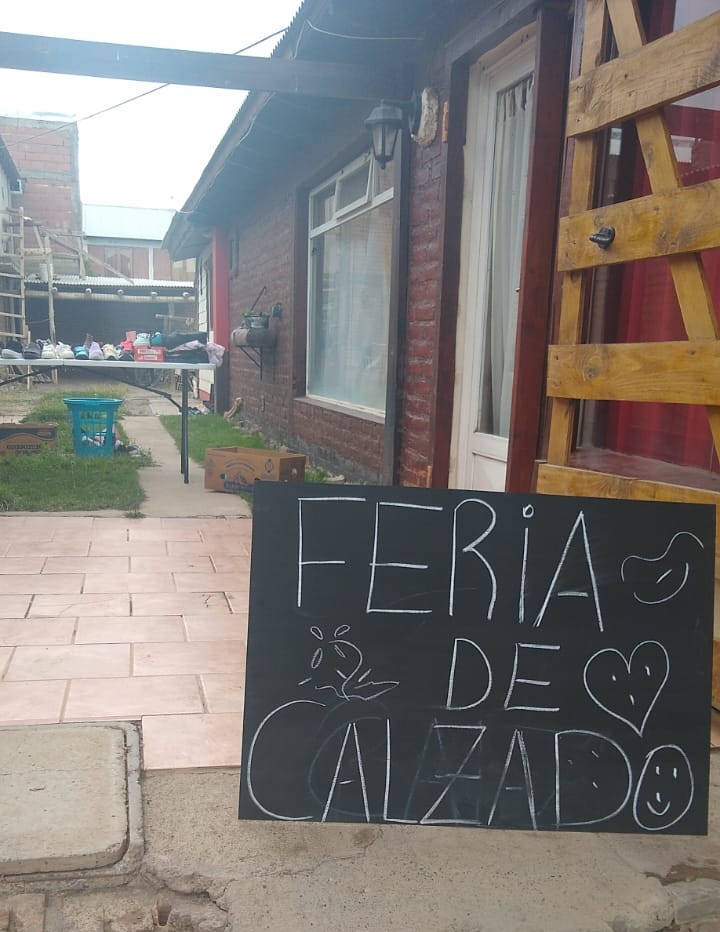 FERiA
DE
CALZADO